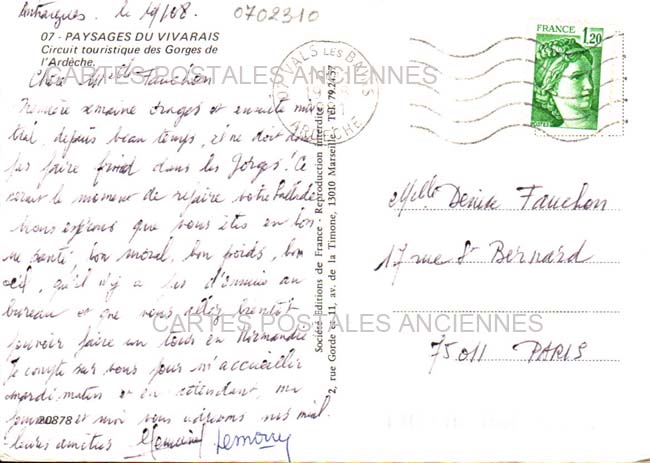 Antraigues, le 19/08.
0702310
07 - PAYSAGES DU VIVARAIS
Circuit touristique des Gorges de
l'Ardèche.
CARTES POSTALES ANCIENNES
Chère Melle Fauchon
Première semaine orages et ensuite mis
tral, depuis beau temps, il ne doit donc
pas faire froid dans les Gorges! Ce
serait le moment de refaire votre ballade
Nous espérons que vous êtes en bon
ne santé, bon moral, bon poids, bon
œil, qu'il n'y a pas d'ennuis au
bureau et que vous allez bientôt
pouvoir faire un tour en Normandie
CARTES POSTALES ANCIENNES
Je compte sur vous pour m'accueillir
mardi matin et en attendant, ma
femme et moi vous adressons nos meil
leures amitiés
20878
Société Editions de France - Reproduction interdite
2, rue Gorde et 11, av. de la Timone, 13010 Marseille. Tél. 79.24.57
07 VALS LES BAINS
ARDECHE
FRANCE
1,20
Melle Denise Fauchon
17 rue St Bernard
75011 PARIS